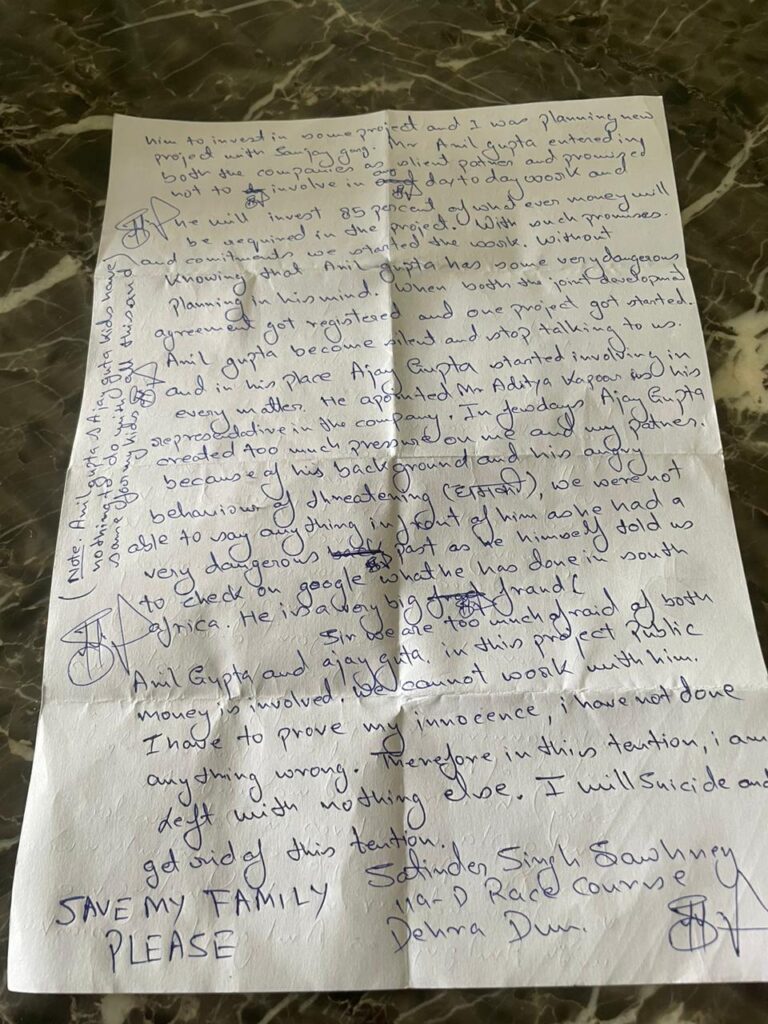 him to invest in some project and I was planning new
project with Sanjay garg. Mr Anil Gupta entered in
both the companies as silent patner and promized
not to involve in day to day work and
he will invest 85 percent of what ever money will
be required in the project. With such promises.
and comitments we started the work. Without
Knowing that Anil gupta has some very dangerous
planning in his mind. When both the joint development
agreement got registered and one project got started.
Anil gupta become silent and stop talking to us.
and in his place Ajay Gupta started involving in
every matter. He apointed Mr Aditya Kapoor as his
representative in the company. In few days Ajay Gupta
created too much pressure on me and my patner.
because of his background and his angry
behaviour of threatening (धमकी), we were not
able to say anything in front of him as he had a
very dangerous past as he himself told us
to check on google what he has done in south
africa. He is a very big fraud (
Sir we are too much afraid of both
Anil Gupta and ajay guta. in this project Public
money is involved. We cannot work with him.
I have to prove my innocence, i have not done
anything wrong. Therefore in this tention, i am
Left with nothing else. I will Suicide and
get rid of this tention.
Satinder Singh Sawhney
119-D Race Course
Dehra Dun.
SAVE MY FAMILY
PLEASE
(Note. Anil gupta & Ajay guta kids have
nothing to do with all this and
same for my kids